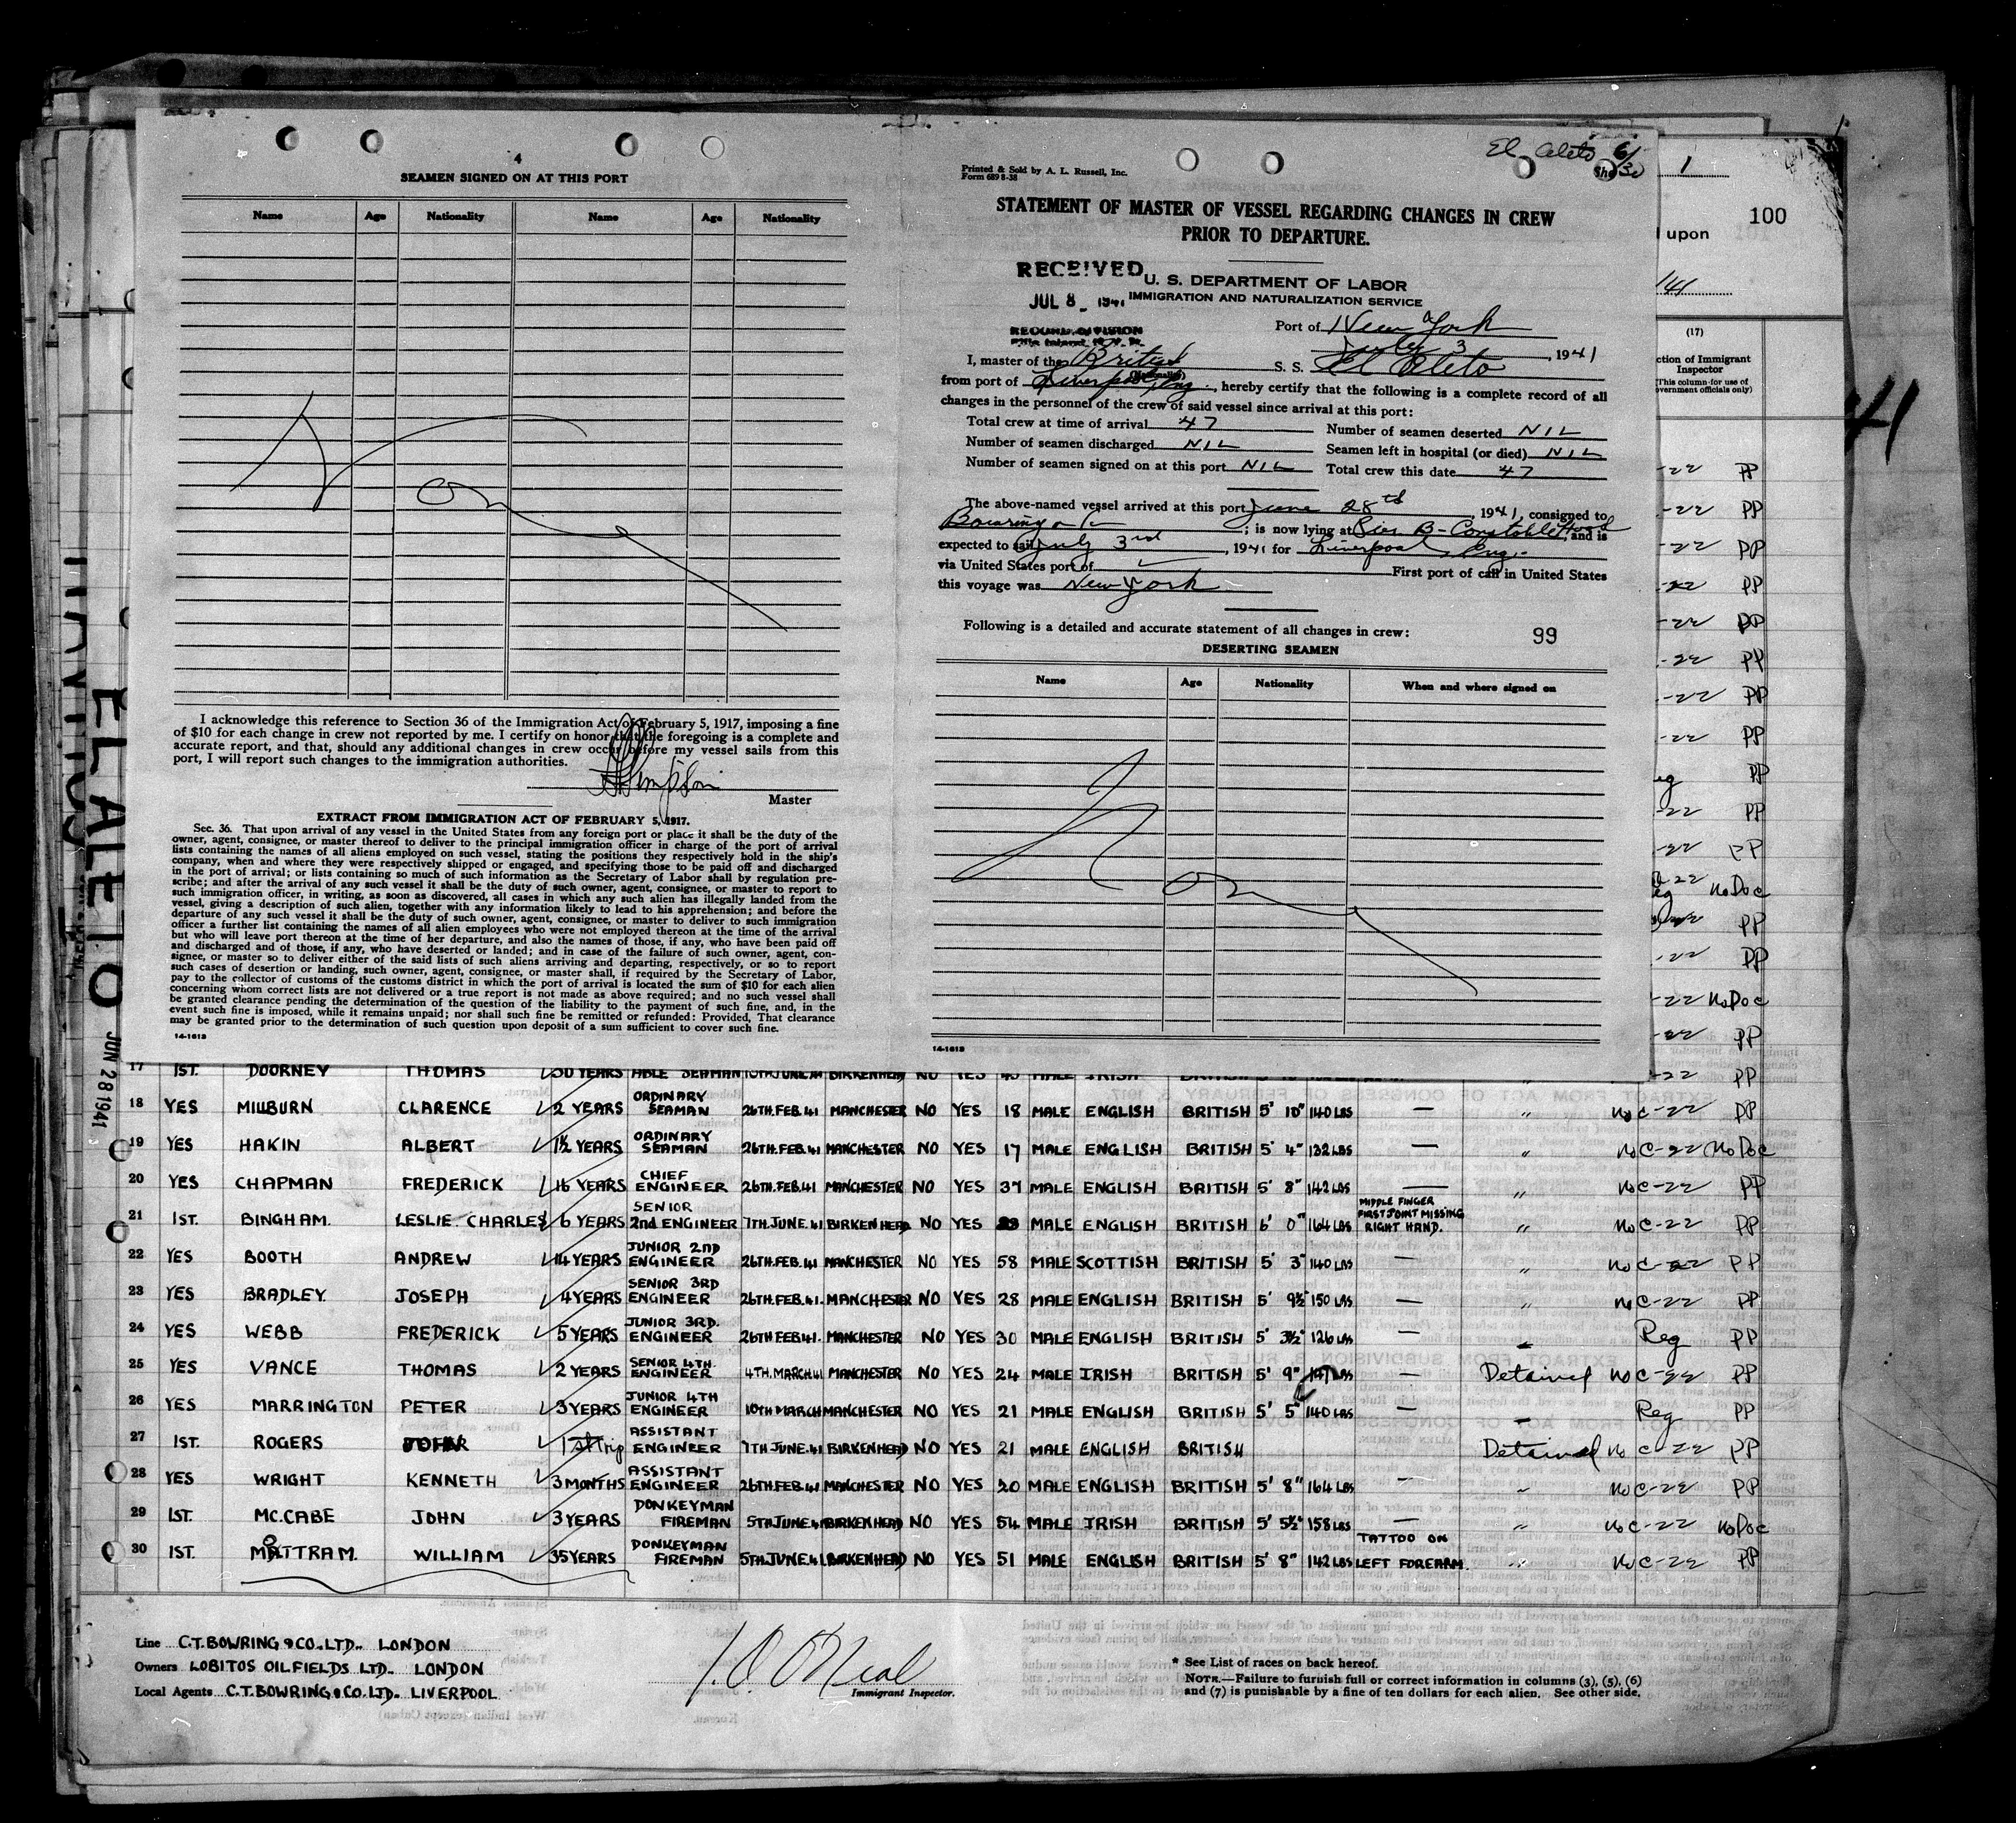 4
SEAMEN SIGNED ON AT THIS PORT
Name Age Nationality Name Age Nationality
None
I acknowledge this reference to Section 36 of the Immigration Act of February 5, 1917, imposing a fine
of $10 for each change in crew not reported by me. I certify on honor that the foregoing is a complete and
accurate report, and that, should any additional changes in crew occur before my vessel sails from this
port, I will report such changes to the immigration authorities.
Simpson
Master
EXTRACT FROM IMMIGRATION ACT OF FEBRUARY 5, 1917.
Sec. 36. That upon arrival of any vessel in the United States from any foreign port or place it shall be the duty of the
owner, agent, consignee, or master thereof to deliver to the principal immigration officer in charge of the port of arrival
lists containing the names of all aliens employed on such vessel, stating the positions they respectively hold in the ship's
company, when and where they were respectively shipped or engaged, and specifying those to be paid off and discharged
in the port of arrival; or lists containing so much of such information as the Secretary of Labor shall by regulation pre-
scribe; and after the arrival of any such vessel it shall be the duty of such owner, agent, consignee, or master to report to
such immigration officer, in writing, as soon as discovered, all cases in which any such alien has illegally landed from the
vessel, giving a description of such alien, together with any information likely to lead to his apprehension; and before the
departure of any such vessel it shall be the duty of such owner, agent, consignee, or master to deliver to such immigration
officer a further list containing the names of all alien employees who were not employed thereon at the time of the arrival
but who will leave port thereon at the time of her departure, and also the names of those, if any, who have been paid off
and discharged and of those, if any, who have deserted or landed; and in case of the failure of such owner, agent, con-
signee, or master so to deliver either of the said lists of such aliens arriving and departing, respectively, or so to report
such cases of desertion or landing, such owner, agent, consignee, or master shall, if required by the Secretary of Labor,
pay to the collector of customs of the customs district in which the port of arrival is located the sum of $10 for each alien
concerning whom correct lists are not delivered or a true report is not made as above required; and no such vessel shall
be granted clearance pending the determination of the question of the liability to the payment of such fine, and, in the
event such fine is imposed, while it remains unpaid; nor shall such fine be remitted or refunded: Provided, That clearance
may be granted prior to the determination of such question upon deposit of a sum sufficient to cover such fine.
14-1613
El Aleto 6/30
Printed & Sold by A. L. Russell, Inc.
Form 689 8-38
STATEMENT OF MASTER OF VESSEL REGARDING CHANGES IN CREW
PRIOR TO DEPARTURE.
RECEIVED
JUL 8 - 1941
RECORD DIVISION
U. S. DEPARTMENT OF LABOR
IMMIGRATION AND NATURALIZATION SERVICE
Port of New York
July 3, 1941
I, master of the British S. S. El Aleto
from port of Liverpool, Eng., hereby certify that the following is a complete record of all
changes in the personnel of the crew of said vessel since arrival at this port:
Total crew at time of arrival 47 Number of seamen deserted NIL
Number of seamen discharged NIL Seamen left in hospital (or died) NIL
Number of seamen signed on at this port NIL Total crew this date 47
The above-named vessel arrived at this port June 28th, 1941, consigned to
Bowring & Co; is now lying at Pier B- Constable Hook, and is
expected to sail July 3rd, 1941 for Liverpool, Eng.
via United States port of First port of call in United States
this voyage was New York
Following is a detailed and accurate statement of all changes in crew:
99
DESERTING SEAMEN
Name Age Nationality When and where signed on
None
14-1613
1
100
upon
/41
(17)
ction of Immigrant
Inspector
(This column for use of
overnment officials only)
41
EL ALETO
JUN 28 1941
-22 PP
-22 PP
-22 PP
-22 PP
-22 PP
-22 PP
-22 PP
-22 PP
eg PP
-22 PP
-22 PP
-22 no Doc
-22 PP
-22 PP
-22 no Doc
-22 PP
17 IST. DOORNEY THOMAS 30 YEARS ABLE SEAMAN 10TH JUNE 41 BIRKENHEAD NO YES MALE IRISH BRITISH -22 PP
18 YES MILLBURN CLARENCE 2 YEARS ORDINARY SEAMAN 26TH.FEB.41 MANCHESTER NO YES 18 MALE ENGLISH BRITISH 5' 10" 140 LBS — " no C-22 PP
19 YES HAKIN ALBERT 1½ YEARS ORDINARY SEAMAN 26TH.FEB.41 MANCHESTER NO YES 17 MALE ENGLISH BRITISH 5' 4" 132 LBS — " no C-22 no Doc
20 YES CHAPMAN FREDERICK 16 YEARS CHIEF ENGINEER 26TH.FEB.41 MANCHESTER NO YES 37 MALE ENGLISH BRITISH 5' 8" 142 LBS — " no C-22 PP
21 IST. BINGHAM. LESLIE CHARLES 6 YEARS SENIOR 2nd ENGINEER 7TH JUNE.41 BIRKENHEAD NO YES MALE ENGLISH BRITISH 6' 0" 164 LBS MIDDLE FINGER FIRST JOINT MISSING RIGHT HAND. " no C-22 PP
22 YES BOOTH ANDREW 14 YEARS JUNIOR 2ND ENGINEER 26TH.FEB.41 MANCHESTER NO YES 58 MALE SCOTTISH BRITISH 5' 3" 140 LBS — " no C-22 PP
23 YES BRADLEY JOSEPH 4 YEARS SENIOR 3RD ENGINEER 26TH.FEB.41. MANCHESTER NO YES 28 MALE ENGLISH BRITISH 5' 9½" 150 LBS — " no C-22 PP
24 YES WEBB FREDERICK 5 YEARS JUNIOR 3RD. ENGINEER 26TH FEB 41. MANCHESTER NO YES 30 MALE ENGLISH BRITISH 5' 3½" 126 LBS — Reg PP
25 YES VANCE THOMAS 2 YEARS SENIOR 4TH. ENGINEER 4TH.MARCH 41 MANCHESTER NO YES 24 MALE IRISH BRITISH 5' 9" 147 LBS — Detained no C-22 PP
26 YES MARRINGTON PETER 3 YEARS JUNIOR 4TH ENGINEER 10TH MARCH MANCHESTER NO YES 21 MALE ENGLISH BRITISH 5' 5" 140 LBS — Reg PP
27 IST. ROGERS JOHN 1st trip ASSISTANT ENGINEER 7TH JUNE.41 BIRKENHEAD NO YES 21 MALE ENGLISH BRITISH Detained no C-22 PP
28 YES WRIGHT KENNETH 3 MONTHS ASSISTANT ENGINEER 26TH.FEB.41 MANCHESTER NO YES 20 MALE ENGLISH BRITISH 5' 8" 164 LBS — no C-22 PP
29 IST. MC.CABE JOHN 3 YEARS DONKEYMAN FIREMAN 5TH JUNE.41 BIRKENHEAD NO YES 54 MALE IRISH BRITISH 5' 5½" 158 LBS — " no C-22 no Doc
30 IST. MATTRAM. WILLIAM 35 YEARS DONKEYMAN FIREMAN 5TH JUNE.41 BIRKENHEAD NO YES 51 MALE ENGLISH BRITISH 5' 8" 142 LBS TATTOO ON LEFT FOREARM. " no C-22 PP
Line C.T. BOWRING & CO. LTD. LONDON
Owners LOBITOS OILFIELDS LTD. LONDON
Local Agents C.T. BOWRING & CO. LTD. LIVERPOOL
J. O. O'Neal
Immigrant Inspector.
* See List of races on back hereof.
NOTE.—Failure to furnish full or correct information in columns (3), (5), (6)
and (7) is punishable by a fine of ten dollars for each alien. See other side.